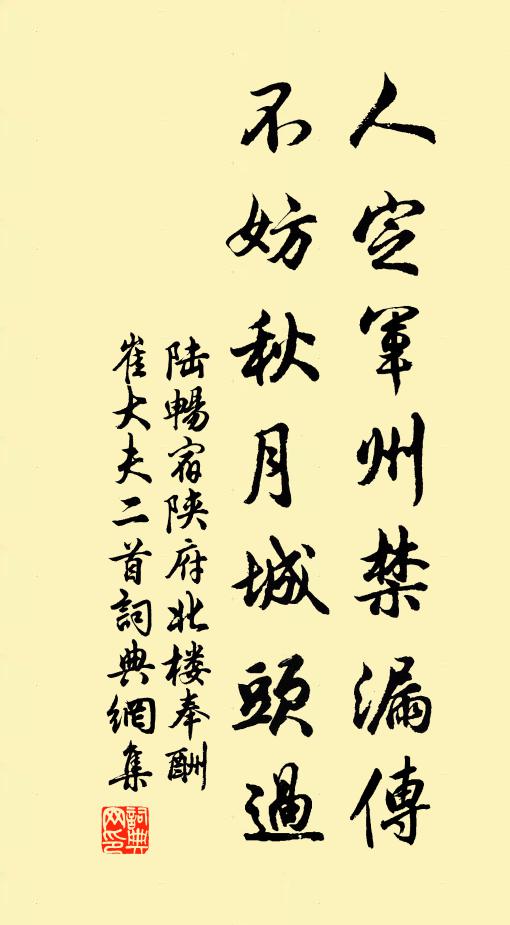 人定軍州禁漏傳
不妨秋月城頭過
陆暢宿陕府北楼奉酬
崔大夫二首詞典網集
詞典網印